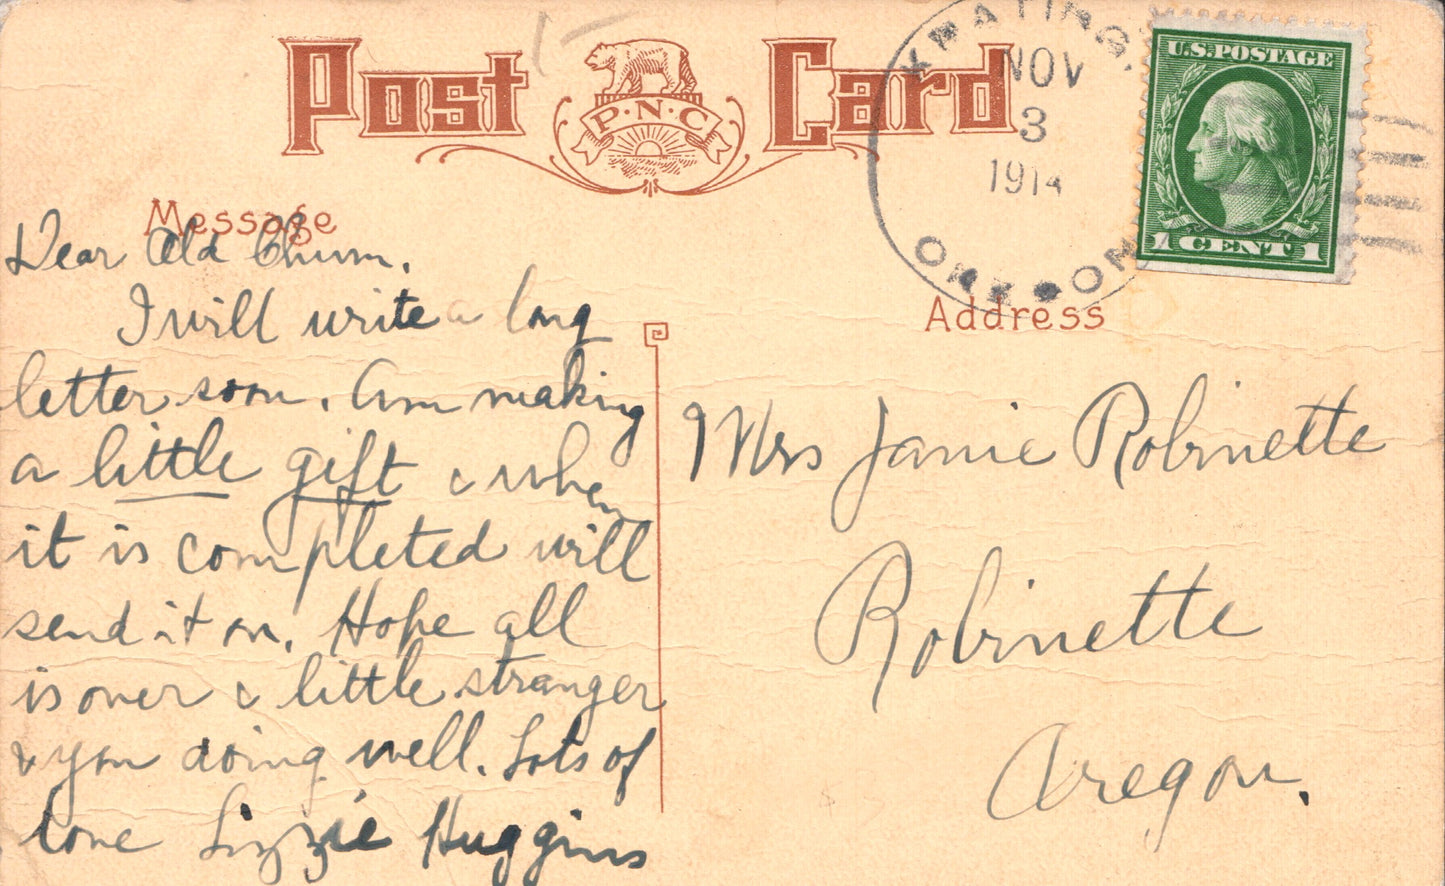 Post Card
P·N·C
NOV
3
1914
OREGON
U.S. POSTAGE
1 CENT 1
Message
Address
Dear Old Chum.
I will write a long
letter soon. Am making
a little gift & when
it is completed will
send it on. Hope all
is over & little stranger
& you doing well. Lots of
love Lizzie Huggins
Mrs Janie Robinette
Robinette
Oregon.